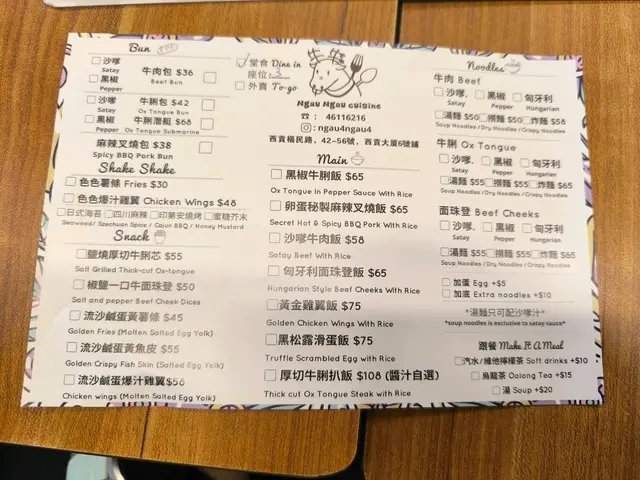 Bun
沙嗲
Satay
黑椒
Pepper
牛肉包 $36
Beef Bun
沙嗲
Satay
黑椒
Pepper
牛脷包 $42
Ox Tongue Bun
牛脷潛艇 $68
Ox Tongue Submarine
麻辣叉燒包 $38
Spicy BBQ Pork Bun
Shake Shake
色色薯條 Fries $30
色色爆汁雞翼 Chicken Wings $48
日式海苔 四川麻辣 印第安燒烤 蜜糖芥末
Seaweed/ Szechuan Spice / Cajun BBQ / Honey Mustard
Snack
鹽燒厚切牛脷芯 $55
Salt Grilled Thick-cut Ox-tongue
椒鹽一口牛面珠登 $50
Salt and pepper Beef Cheek Dices
流沙鹹蛋黃薯條 $45
Golden Fries (Molten Salted Egg Yolk)
流沙鹹蛋黃魚皮 $55
Golden Crispy Fish Skin (Salted Egg Yolk)
流沙鹹蛋爆汁雞翼 $58
Chicken wings (Molten Salted Egg Yolk)
堂食 Dine in
座位: 3
外賣 To-go
牛牛
Ngau Ngau cuisine
☎ : 46116216
: ngau4ngau4
西貢福民路, 42-56號, 西貢大廈6號鋪
Main
黑椒牛脷飯 $65
Ox Tongue In Pepper Sauce With Rice
卵蛋秘製麻辣叉燒飯 $65
Secret Hot & Spicy BBQ Pork With Rice
沙嗲牛肉飯 $58
Satay Beef With Rice
匈牙利面珠登飯 $65
Hungarian Style Beef Cheeks With Rice
黃金雞翼飯 $75
Golden Chicken Wings With Rice
黑松露滑蛋飯 $75
Truffle Scrambled Egg with Rice
厚切牛脷扒飯 $108 (醬汁自選)
Thick cut Ox Tongue Steak with Rice
Noodles
牛肉 Beef
沙嗲, 黑椒 匈牙利
Satay Pepper Hungarian
湯麵 $50 撈麵 $50 炸麵 $58
Soup Noodles / Dry Noodles / Crispy Noodles
牛脷 Ox Tongue
沙嗲, 黑椒 匈牙利
Satay Pepper Hungarian
湯麵 $55 撈麵 $55 炸麵 $65
Soup Noodles / Dry Noodles / Crispy Noodles
面珠登 Beef Cheeks
沙嗲, 黑椒 匈牙利
Satay Pepper Hungarian
湯麵 $55 撈麵 $55 炸麵 $65
Soup Noodles / Dry Noodles / Crispy Noodles
加蛋 Egg +$5
加底 Extra noodles +$10
*湯麵只可配沙嗲汁*
*soup noodles is exclusive to satay sauce*
跟餐 Make It A Meal
汽水/維他檸檬茶 Soft drinks +$10
烏龍茶 Oolong Tea +$15
湯 Soup +$20